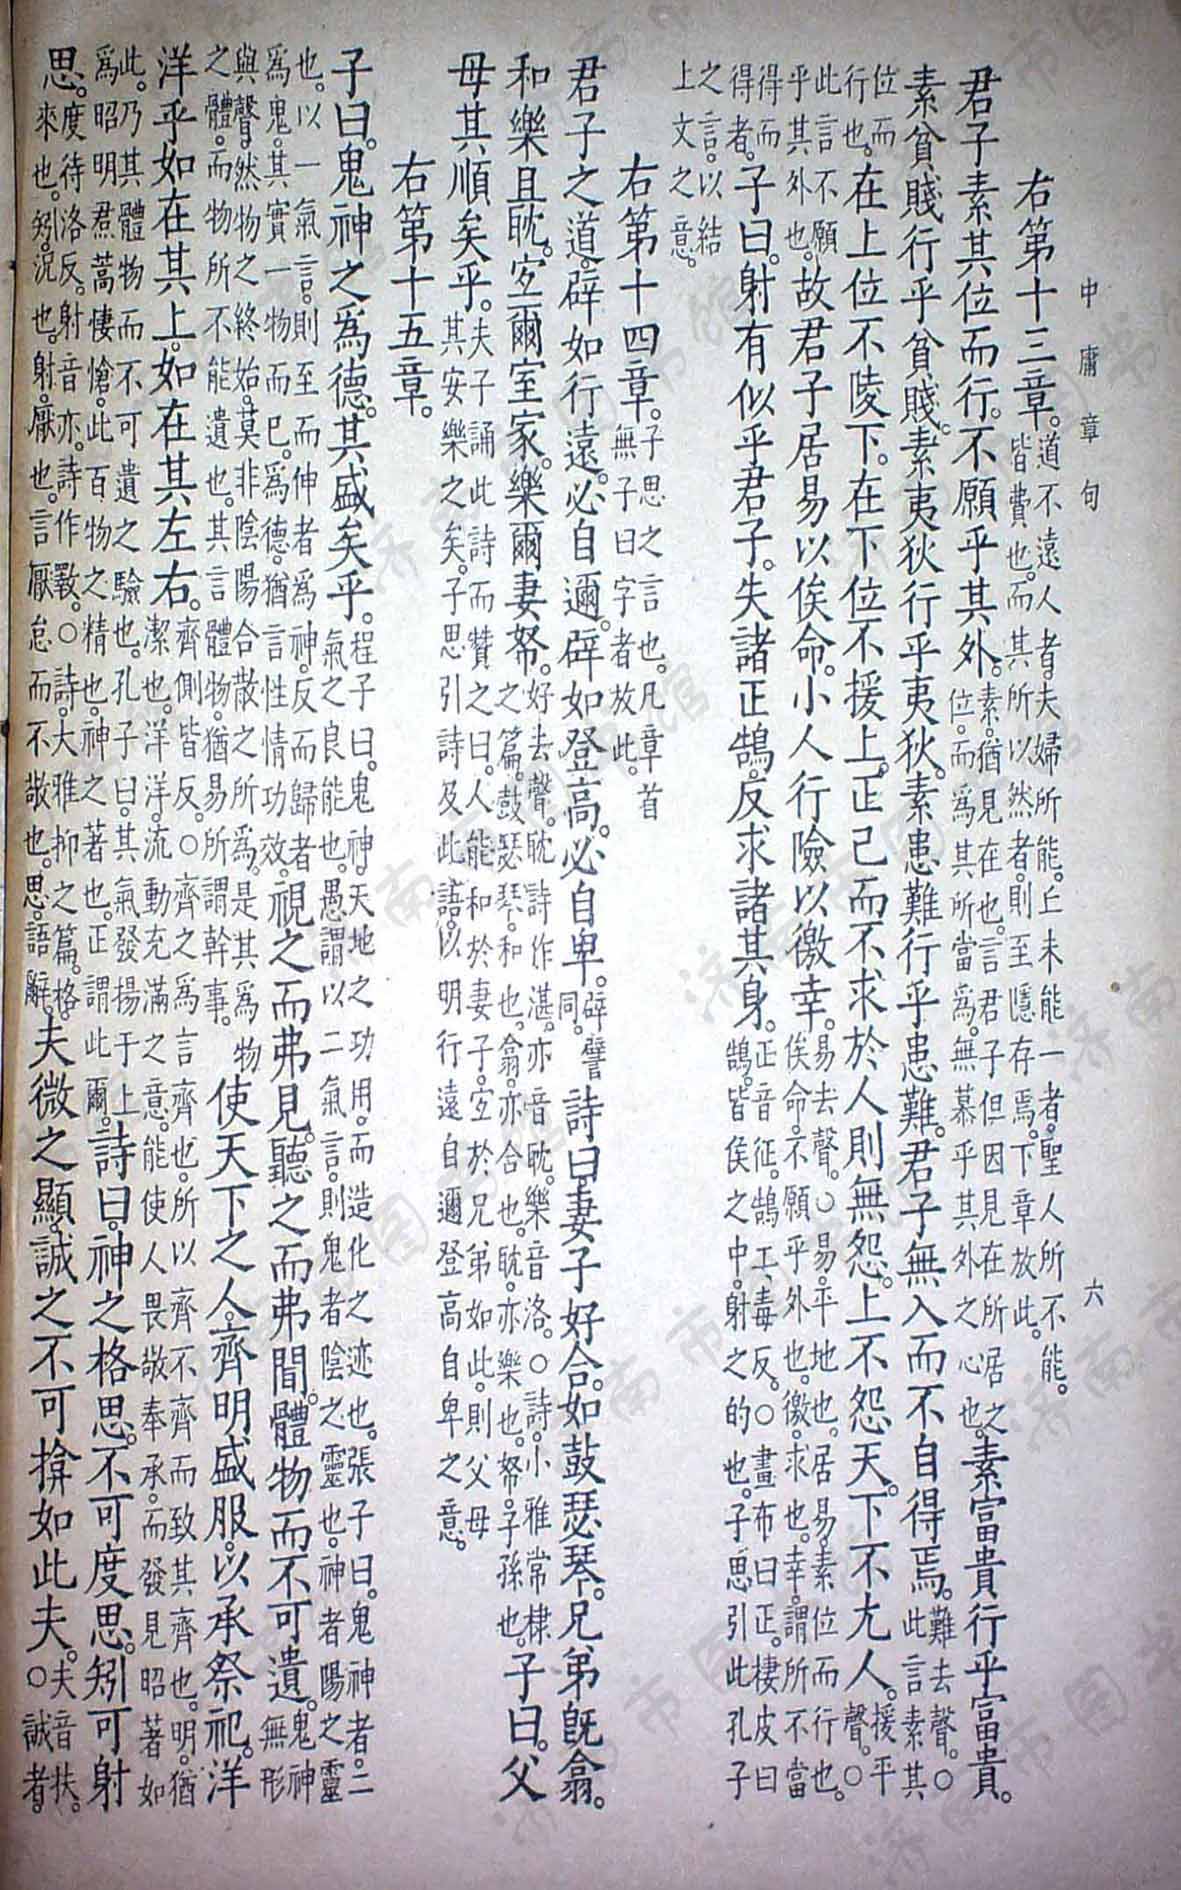 中庸章句 六
右第十三章。道不遠人者。夫婦所能。丘未能一者。聖人所不能。皆費也。而其所以然者。則至隱存焉。下章放此。
君子素其位而行。不願乎其外。素。猶見在也。言君子但因見在所居之位。而爲其所當爲。無慕乎其外之心也。素富貴行乎富貴。
素貧賤行乎貧賤。素夷狄行乎夷狄。素患難行乎患難。君子無入而不自得焉。難去聲。○此言素其
位而行也。在上位不陵下。在下位不援上。正己而不求於人則無怨。上不怨天。下不尤人。援平聲。○
此言不願乎其外也。故君子居易以俟命。小人行險以徼幸。易去聲。○易。平地也。居易。素位而行也。俟命。不願乎外也。徼。求也。幸。謂所不當
得而得者。子曰。射有似乎君子。失諸正鵠。反求諸其身。正音征。鵠工毒反。○畫布曰正。棲皮曰鵠。皆侯之中。射之的也。子思引此孔子
之言。以結上文之意。
右第十四章。子思之言也。凡章首無子曰字者放此。
君子之道。辟如行遠。必自邇。辟如登高。必自卑。辟譬同。詩曰。妻子好合。如鼓瑟琴。兄弟旣翕。
和樂且耽。宜爾室家。樂爾妻帑。好去聲。耽詩作湛。亦音耽。樂音洛。○詩。小雅常棣之篇。鼓瑟琴。和也。翕。亦合也。耽。亦樂也。帑。子孫也。子曰。父
母其順矣乎。夫子誦此詩而贊之曰。人能和於妻子。宜於兄弟如此。則父母其安樂之矣。子思引詩及此語。以明行遠自邇登高自卑之意。
右第十五章。
子曰。鬼神之爲德。其盛矣乎。程子曰。鬼神。天地之功用。而造化之迹也。張子曰。鬼神者。二氣之良能也。愚謂以二氣言。則鬼者陰之靈也。神者陽之靈
也。以一氣言。則至而伸者爲神。反而歸者爲鬼。其實一物而已。爲德。猶言性情功效。視之而弗見。聽之而弗聞。體物而不可遺。鬼神無形
與聲。然物之終始。莫非陰陽合散之所爲。是其爲物之體。而物所不能遺也。其言體物。猶易所謂幹事。使天下之人。齊明盛服。以承祭祀。洋
洋乎如在其上。如在其左右。齊側皆反。○齊之爲言齊也。所以齊不齊而致其齊也。明。猶潔也。洋洋。流動充滿之意。能使人畏敬奉承。而發見昭著如
此。乃其體物而不可遺之驗也。孔子曰。其氣發揚于上。爲昭明焄蒿悽愴。此百物之精也。神之著也。正謂此爾。詩曰。神之格思。不可度思。矧可射
思。度待洛反。射音亦。詩作斁。○詩。大雅抑之篇。格。來也。矧。況也。射。厭也。言厭怠而不敬也。思。語辭。夫微之顯。誠之不可揜如此夫。夫音扶。○誠者。